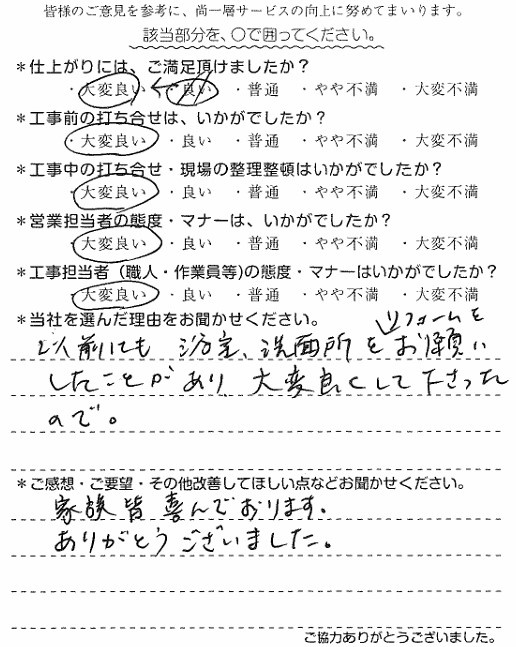 皆様のご意見を参考に、尚一層サービスの向上に努めてまいります。
該当部分を、○で囲ってください。
＊仕上がりには、ご満足頂けましたか？
・大変良い ・良い ・普通 ・やや不満 ・大変不満
＊工事前の打ち合せは、いかがでしたか？
・大変良い ・良い ・普通 ・やや不満 ・大変不満
＊工事中の打ち合せ・現場の整理整頓はいかがでしたか？
・大変良い ・良い ・普通 ・やや不満 ・大変不満
＊営業担当者の態度・マナーは、いかがでしたか？
・大変良い ・良い ・普通 ・やや不満 ・大変不満
＊工事担当者（職人・作業員等)の態度・マナーはいかがでしたか？
・大変良い ・良い ・普通 ・やや不満 ・大変不満
＊当社を選んだ理由をお聞かせください。
リフォームを
以前にも 浴室、洗面所をお願い
したことがあり、大変良くして下さった
ので。
＊ご感想・ご要望・その他改善してほしい点などお聞かせください。
家族皆喜んでおります。
ありがとうございました。
ご協力ありがとうございました。